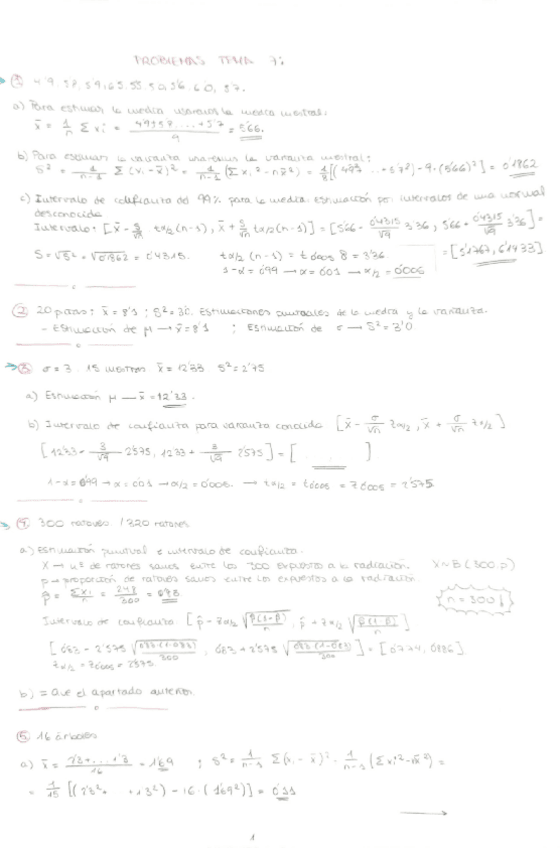 PROBLEMAS TEMA 7:
① 4'9, 5'7, 5'9, 6'5, 5'5, 5'0, 5'6, 6'0, 5'7.
a) Para estimar la media usaremos la media muestral:
x̄ = 1/n Σ xi = 4'9+5'7+...+5'7 / 9 = 5'66.
b) Para estimar la varianza usaremos la varianza muestral:
S² = 1/n-1 Σ (xi - x̄)² = 1/n-1 (Σ xi² - nx̄²) = 1/8 [(4'9² + ... + 5'7²) - 9·(5'66)²] = 0'1862
c) Intervalo de confianza del 99% para la media. Estimación por intervalos de una normal
desconocida
Intervalo: [x̄ - S/√n tα/2 (n-1), x̄ + S/√n tα/2 (n-1)] = [5'66 - 0'4315/√9 3'36, 5'66 + 0'4315/√9 3'36] =
S = √S² = √0'1862 = 0'4315. tα/2 (n-1) = t 0'005 8 = 3'36. = [5'1767, 6'1433]
1-α = 0'99 → α = 0'01 → α/2 = 0'005
② 20 : x̄ = 8'1 ; S² = 3'0. Estimaciones puntuales de la media y la varianza.
- Estimación de μ → x̄ = 8'1 ; Estimación de σ → S² = 3'0
③ σ = 3. 15 x̄ = 12'33 S² = 2'75
a) Estimación μ → x̄ = 12'33.
b) Intervalo de confianza para varianza conocida [x̄ - σ/√n zα/2, x̄ + σ/√n zα/2]
[12'33 - 3/√9 2'575, 12'33 + 3/√9 2'575] = [ ]
1-α = 0'99 → α = 0'01 → α/2 = 0'005. → zα/2 = t0'005 = z0'005 = 2'575
④ 300 ratones / 320 ratones
a) Estimación puntual e intervalo de confianza.
X → nº de ratones sanos entre los 300 expuestos a la radiación. X ~ B(300, p)
p → proporción de ratones sanos entre los expuestos a la radiación.
p̂ = Σxi / n = / 300 = n = 300
Intervalo de confianza: [p̂ - zα/2 √p̂(1-p̂)/n, p̂ + zα/2 √p̂(1-p̂)/n]
[0'83 - 2'575 √0'83·(1-0'83)/300, 0'83 + 2'575 √0'83·(1-0'83)/300] = [0'774, 0'886]
zα/2 = z0'005 = 2'575
b) = Que el apartado anterior
⑤ 16 árboles
a) x̄ = ... / 16 = 1'69 ; S² = 1/n-1 Σ(xi - x̄)² = 1/n-1 (Σ xi² - nx̄²) =
= 1/15 [( + 1'3²) - 16·(1'69²)] = 0'11
1